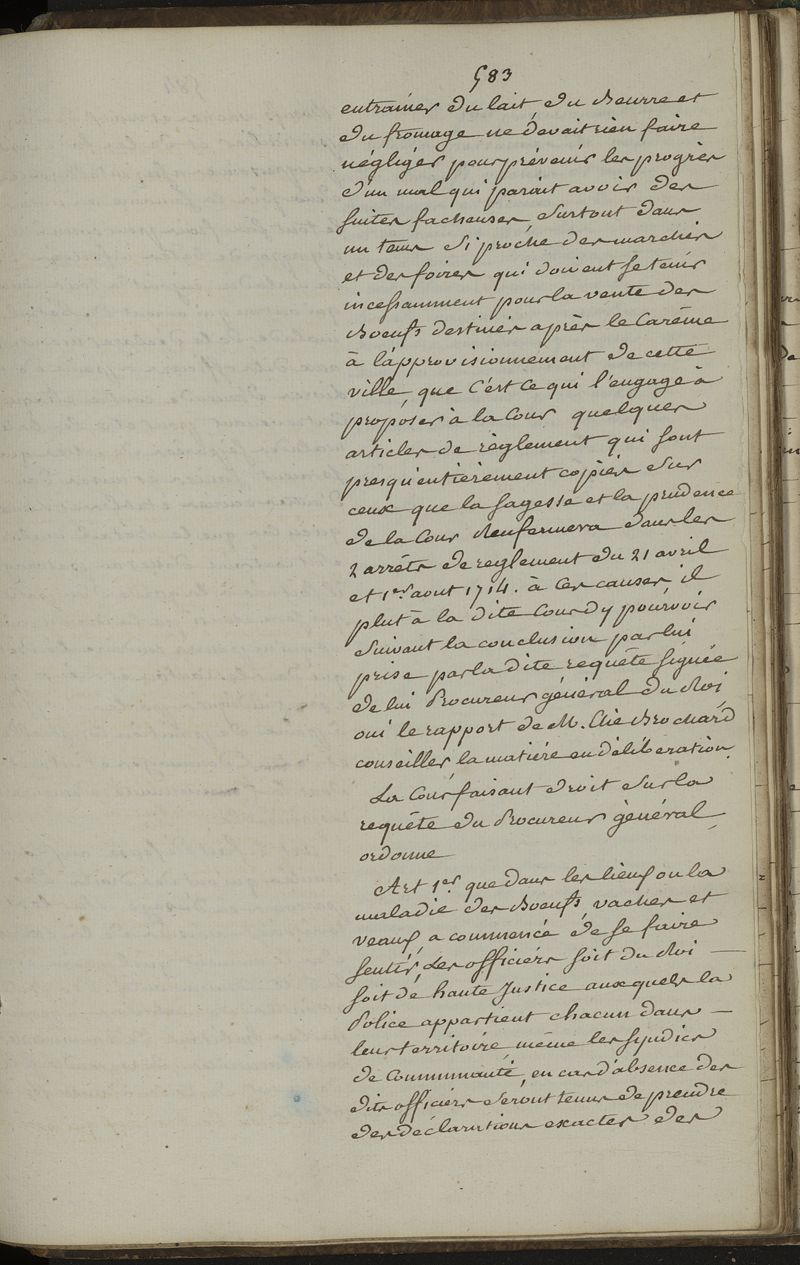 583
entrainer du lait, du beurre et
du fromage ne devait rien faire
négliger pour prévenir les progrès
d'un mal qui parait avoir des
suites facheuses, surtout dans
un tems si proche des marchés
et des foires qui doivent se tenir
incessamment pour la vente des
boeufs destinés après le Carême
à l'approvisionnement de cette
ville, que c'est ce qui l'engage à
proposer à la Cour quelques
articles de règlement qui sont
presqu'entièrement copiés sur
ceux que la sagesse et la prudence
de la Cour renfermera dans les
2 arrêts de reglement du 21 avril
et 1er aout 1714. à ces causes, il
plut à la dite Cour d'y pourvoir
suivant la conclusion par lui
prise par la dite requête signée
de lui Procureur général du Roi
oui le rapport de M. Elie Brochard
conseiller la matière en délibération.
La Cour faisant droit sur la
requête du Procureur général
ordonne
Art 1er que dans les lieux ou la
maladie des boeufs, vaches et
veaux, a commencé de se faire
sentir, les officiers soit du Roi —
soit de haute Justice auxquels la
Police appartient chacun dans —
leur territoire, même les syndics
de Communauté, en cas d'absence des
dits officiers seront tenus de prendre
des déclarations exactes des